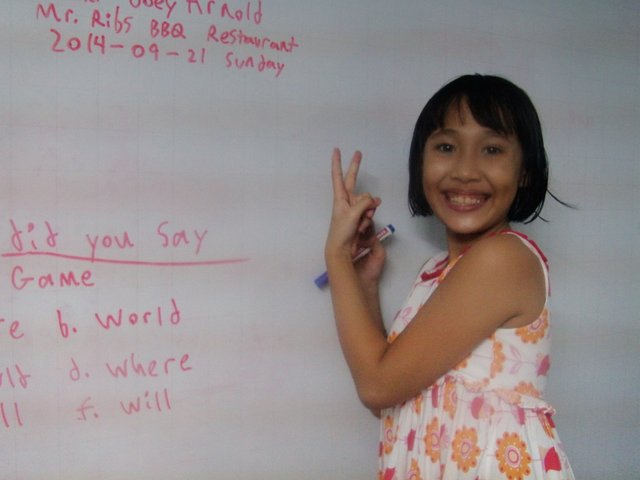 Joey Arnold
Mr. Ribs BBQ Restaurant
2014-09-21 Sunday
did you say
Game
b. World
d. Where
f. Will